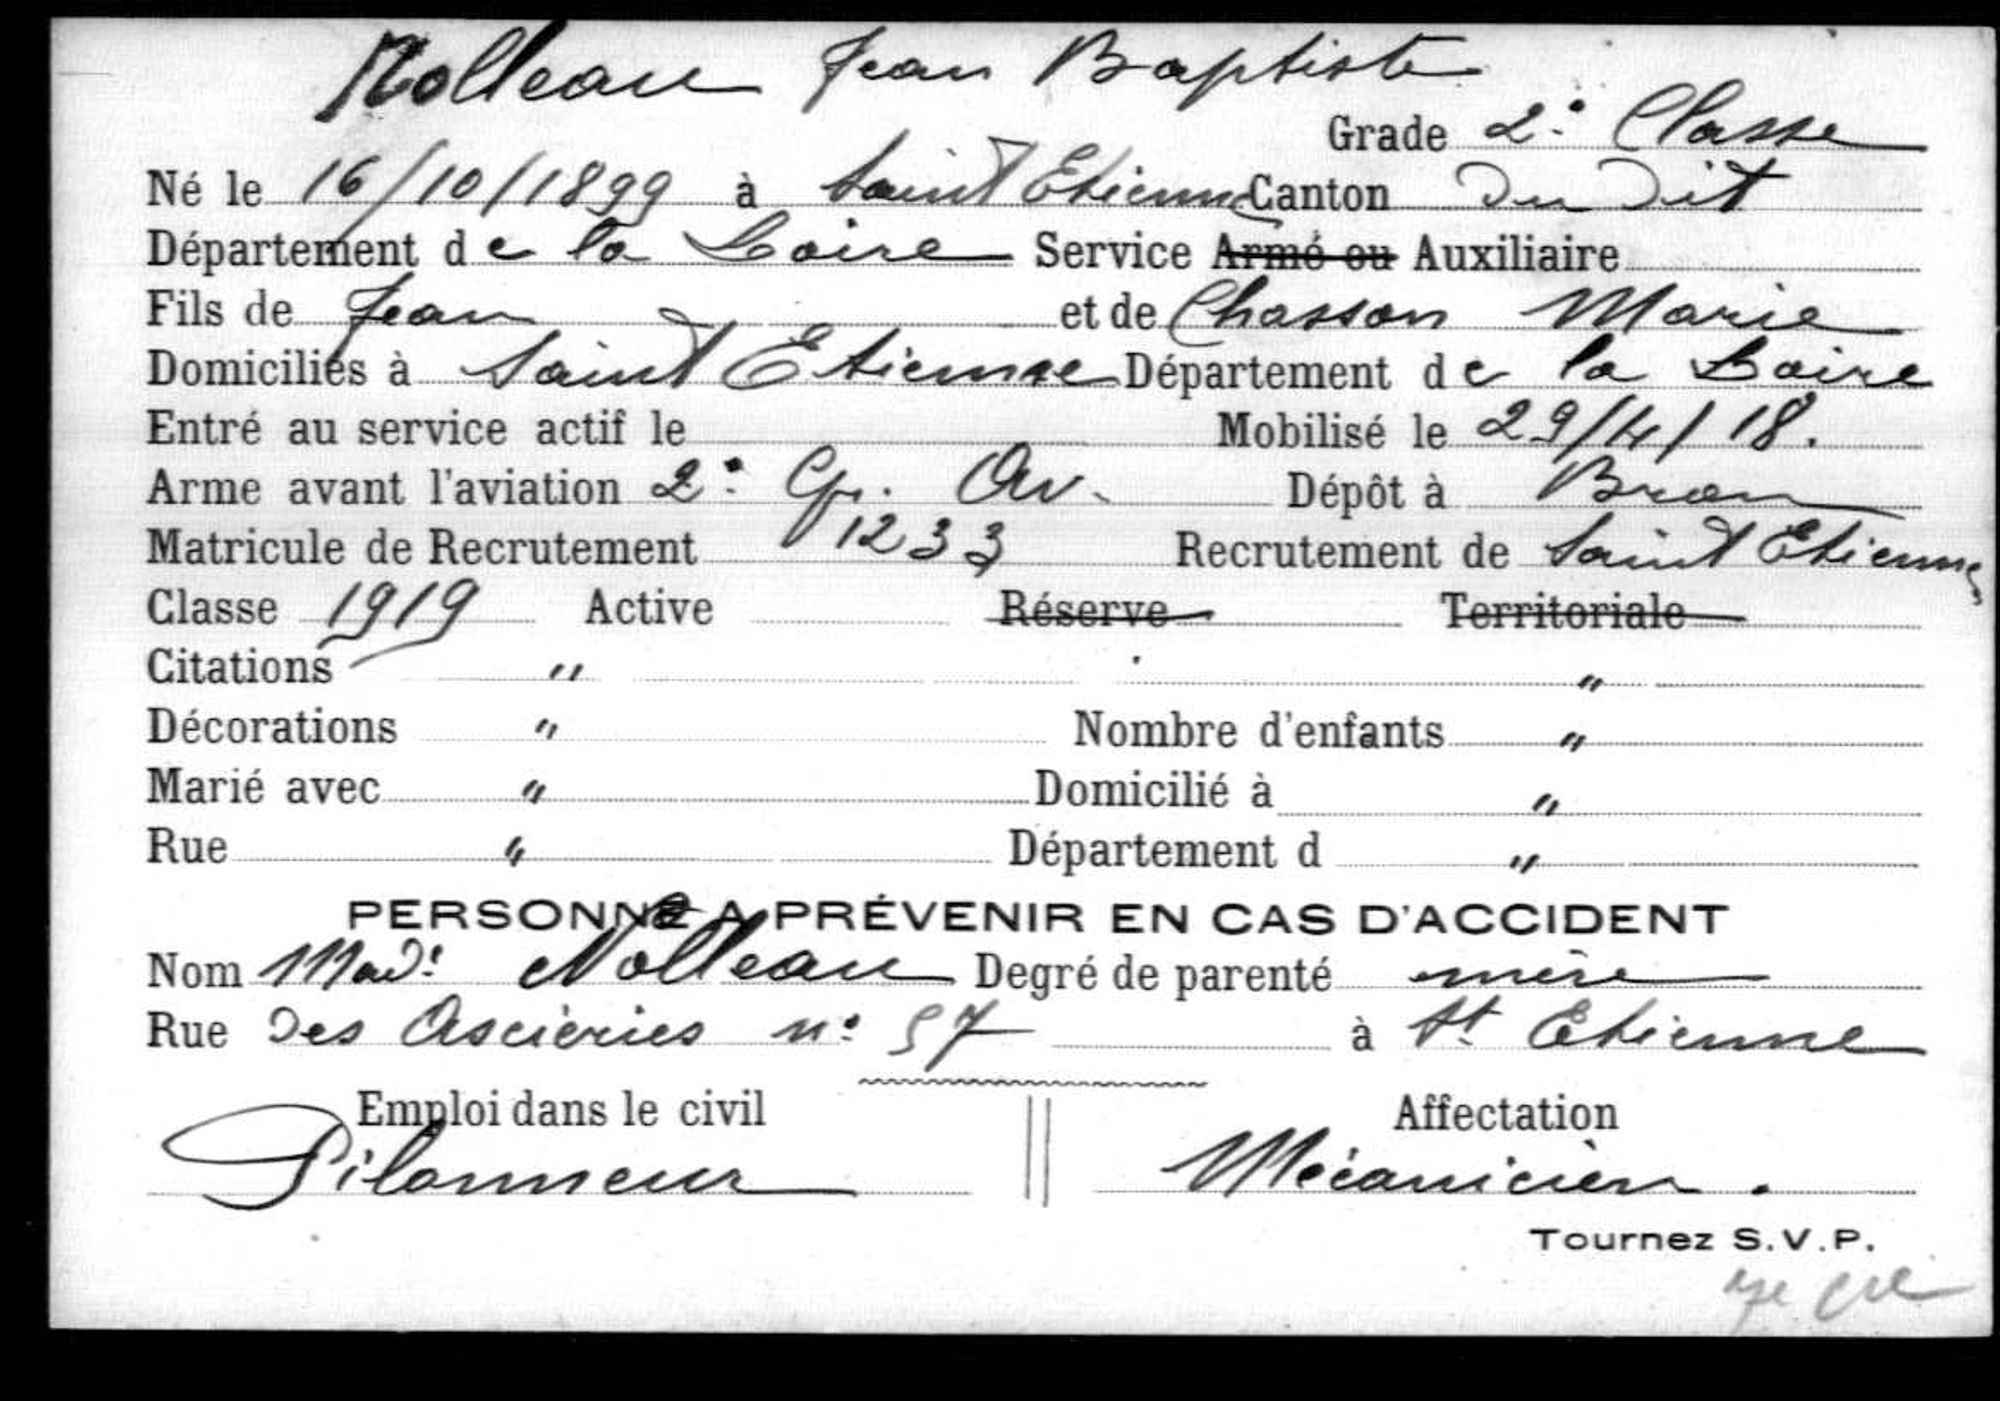 Nolleau Jean Baptiste
Grade 2e Classe
Né le 16/10/1899 à Saint Etienne Canton Du Dit
Département de la Loire Service Armé ou Auxiliaire
Fils de Jean et de Chasson Marie
Domiciliés à Saint Etienne Département de la Loire
Entré au service actif le Mobilisé le 29/4/18.
Arme avant l'aviation 2e Gp. Av. Dépôt à Bron
Matricule de Recrutement 1233 Recrutement de Saint Etienne
Classe 1919 Active Réserve Territoriale
Citations " "
Décorations " Nombre d'enfants "
Marié avec " Domicilié à "
Rue " Département d "
PERSONNE A PRÉVENIR EN CAS D'ACCIDENT
Nom Mad: Nolleau Degré de parenté mère
Rue Des Asciéries n° 57 à St Etienne
Emploi dans le civil Affectation
Pilonneur Mécanicien.
Tournez S.V.P.